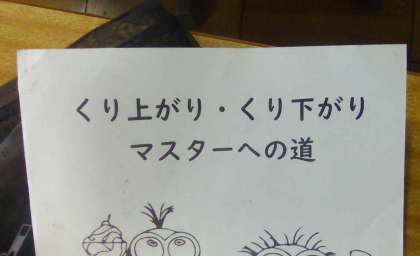 くり上がり・くり下がり
マスターへの道